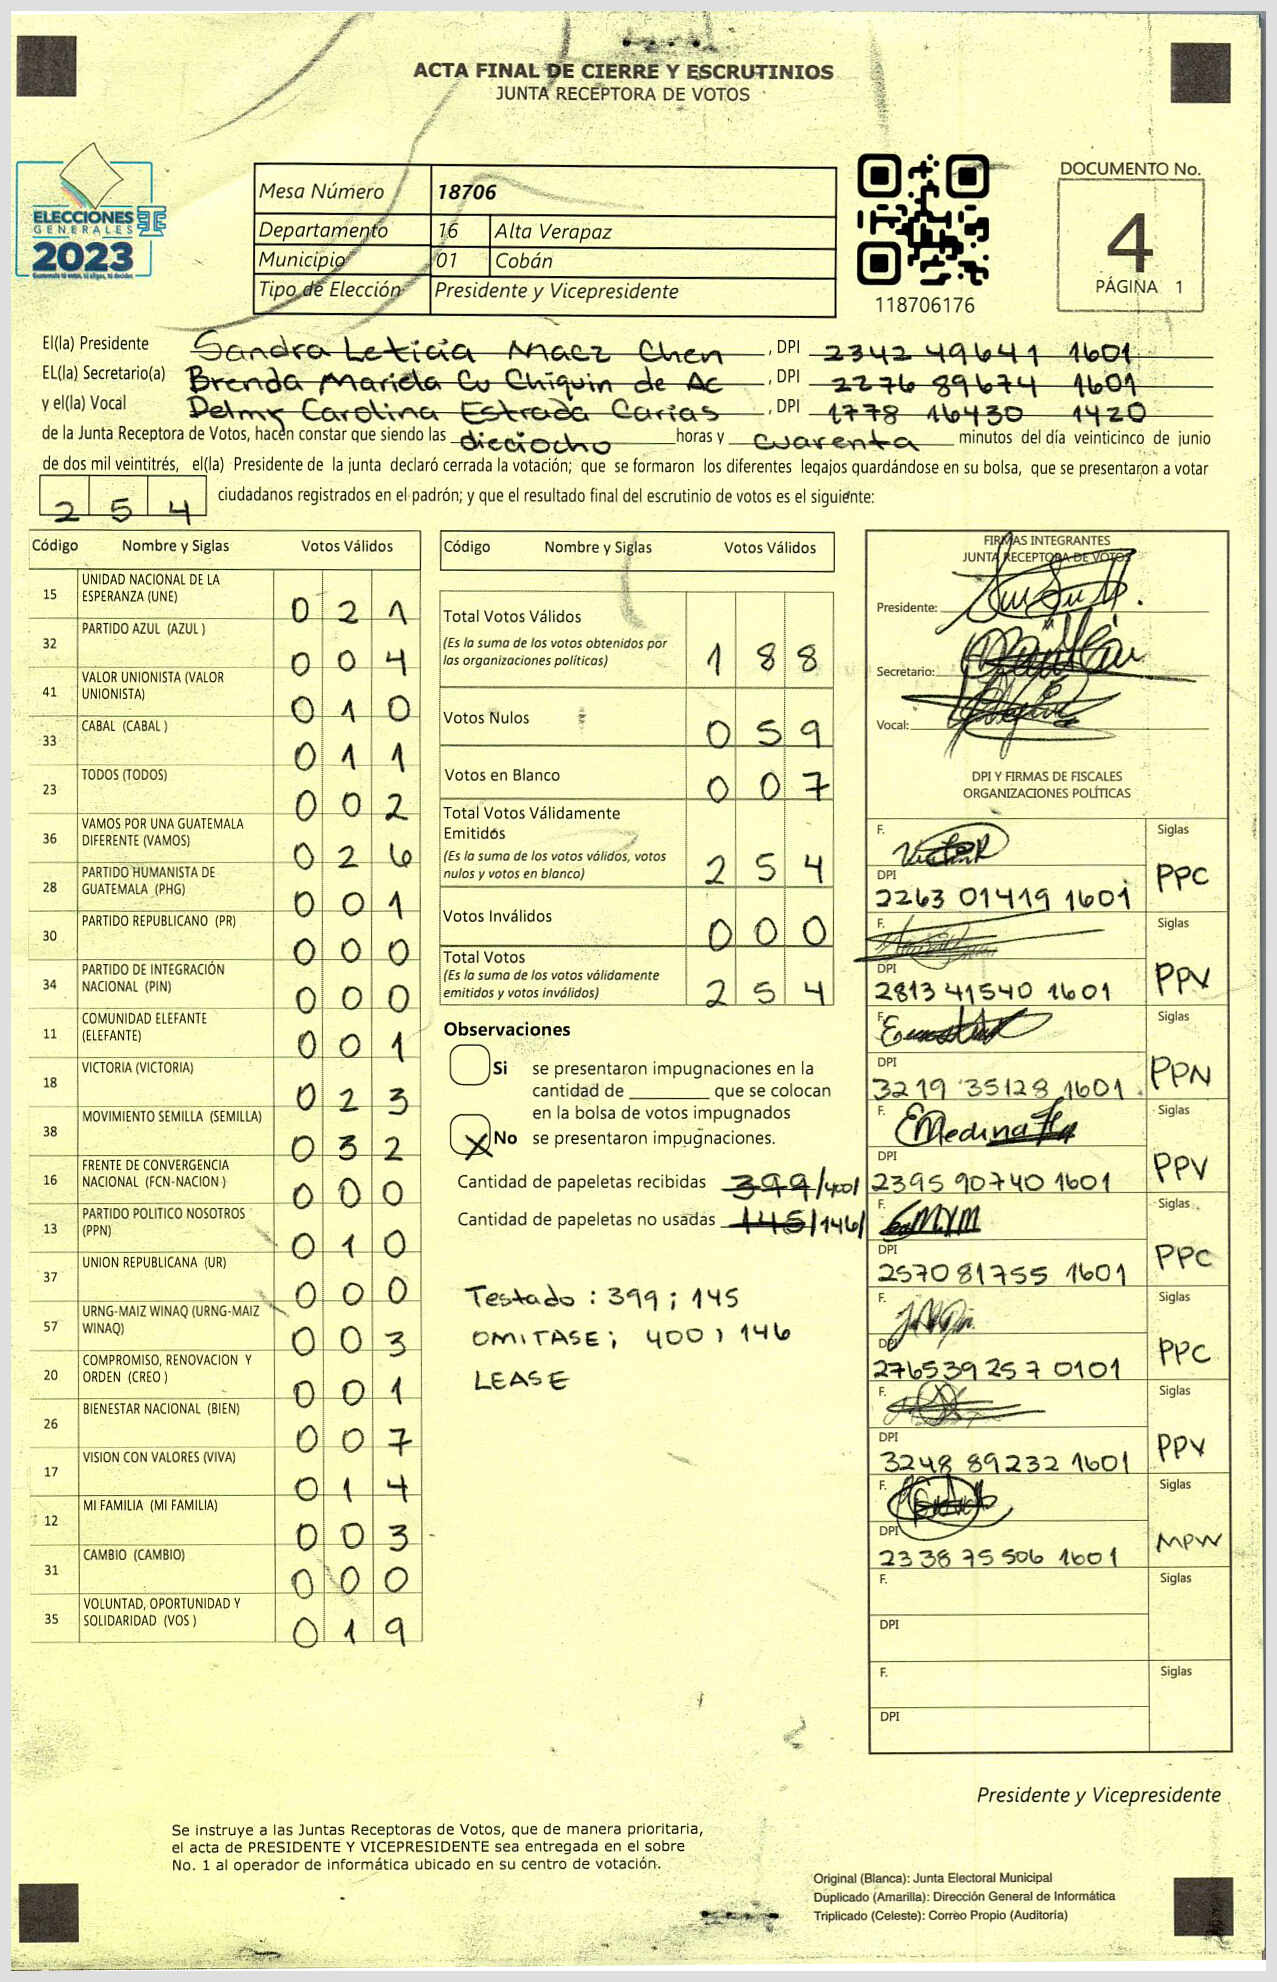 ACTA FINAL DE CIERRE Y ESCRUTINIOS
JUNTA RECEPTORA DE VOTOS
ELECCIONES
GENERALES
2023
Mesa Número 18706
Departamento 16 Alta Verapaz
Municipio 01 Cobán
Tipo de Elección Presidente y Vicepresidente
118706176
DOCUMENTO No.
4
PÁGINA 1
El(la) Presidente Sandra Leticia Macz Chen , DPI 2342 49641 1601
EL(la) Secretario(a) Brenda Mariela Cu Chiquin de Ac , DPI 2276 89674 1601
y el(la) Vocal Delmy Carolina Estrada Carias , DPI 1778 16430 1420
de la Junta Receptora de Votos, hacen constar que siendo las dieciocho horas y cuarenta minutos del día veinticinco de junio
de dos mil veintitrés, el(la) Presidente de la junta declaró cerrada la votación; que se formaron los diferentes legajos guardándose en su bolsa, que se presentaron a votar
254 ciudadanos registrados en el padrón; y que el resultado final del escrutinio de votos es el siguiente:
Código Nombre y Siglas Votos Válidos
15 UNIDAD NACIONAL DE LA ESPERANZA (UNE) 021
32 PARTIDO AZUL (AZUL ) 004
41 VALOR UNIONISTA (VALOR UNIONISTA) 010
33 CABAL (CABAL ) 011
23 TODOS (TODOS) 002
36 VAMOS POR UNA GUATEMALA DIFERENTE (VAMOS) 026
28 PARTIDO HUMANISTA DE GUATEMALA (PHG) 001
30 PARTIDO REPUBLICANO (PR) 000
34 PARTIDO DE INTEGRACIÓN NACIONAL (PIN) 000
11 COMUNIDAD ELEFANTE (ELEFANTE) 001
18 VICTORIA (VICTORIA) 023
38 MOVIMIENTO SEMILLA (SEMILLA) 032
16 FRENTE DE CONVERGENCIA NACIONAL (FCN-NACION ) 000
13 PARTIDO POLITICO NOSOTROS (PPN) 010
37 UNION REPUBLICANA (UR) 000
57 URNG-MAIZ WINAQ (URNG-MAIZ WINAQ) 003
20 COMPROMISO, RENOVACION Y ORDEN (CREO ) 001
26 BIENESTAR NACIONAL (BIEN) 007
17 VISION CON VALORES (VIVA) 014
12 MI FAMILIA (MI FAMILIA) 003
31 CAMBIO (CAMBIO) 000
35 VOLUNTAD, OPORTUNIDAD Y SOLIDARIDAD (VOS ) 019
Código Nombre y Siglas Votos Válidos
Total Votos Válidos 188
(Es la suma de los votos obtenidos por
las organizaciones políticas)
Votos Nulos 059
Votos en Blanco 007
Total Votos Válidamente
Emitidos 254
(Es la suma de los votos válidos, votos
nulos y votos en blanco)
Votos Inválidos 000
Total Votos 254
(Es la suma de los votos válidamente
emitidos y votos inválidos)
Observaciones
Si se presentaron impugnaciones en la
cantidad de ________ que se colocan
en la bolsa de votos impugnados
X No se presentaron impugnaciones.
Cantidad de papeletas recibidas 399/400/
Cantidad de papeletas no usadas 145/146/
Testado : 399 ; 145
OMITASE ; 400 ; 146
LEASE
FIRMAS INTEGRANTES
JUNTA RECEPTORA DE VOTOS
Presidente:
Secretario:
Vocal:
DPI Y FIRMAS DE FISCALES
ORGANIZACIONES POLÍTICAS
F. Siglas
DPI 2263 01419 1601 PPC
F. Siglas
DPI 2813 41540 1601 PPV
F. Siglas
DPI 3219 35128 1601 PPN
F. EMedina Siglas
DPI 2395 90740 1601 PPV
F. Siglas
DPI 2570 81755 1601 PPC
F. Siglas
DPI 2765 39 257 0101 PPC
F. Siglas
DPI 3248 89232 1601 PPV
F. Siglas
DPI 2338 75 506 1601 MPW
F. Siglas
DPI
F. Siglas
DPI
Presidente y Vicepresidente
Se instruye a las Juntas Receptoras de Votos, que de manera prioritaria,
el acta de PRESIDENTE Y VICEPRESIDENTE sea entregada en el sobre
No. 1 al operador de informática ubicado en su centro de votación.
Original (Blanca): Junta Electoral Municipal
Duplicado (Amarilla): Dirección General de Informática
Triplicado (Celeste): Correo Propio (Auditoría)